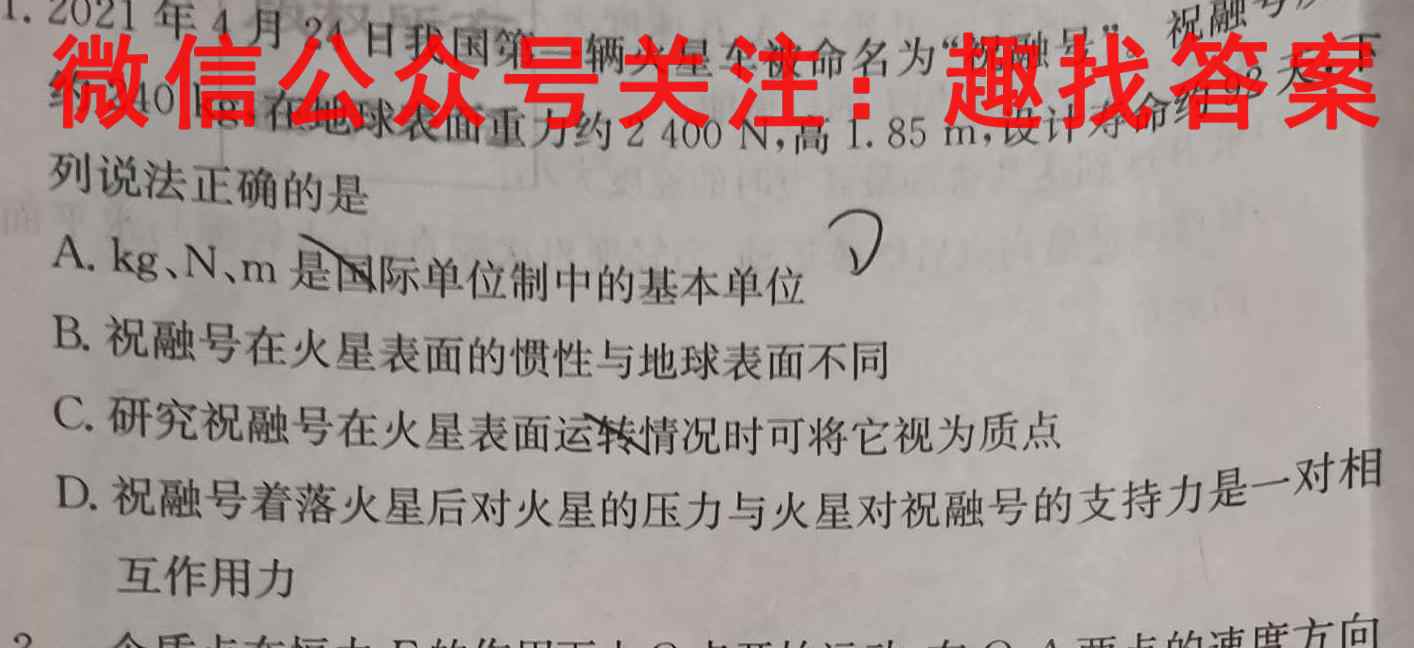 1. 2021 年 4 月 24 日我国第一辆火星车被命名为“祝融号”。祝融号
微信公众号关注：趣找答案
约 240 kg,在地球表面重力约 2 400 N,高 1. 85 m,设计寿命约 92 天,下
列说法正确的是
D
A. kg、N、m 是国际单位制中的基本单位
B. 祝融号在火星表面的惯性与地球表面不同
C. 研究祝融号在火星表面运转情况时可将它视为质点
D. 祝融号着落火星后对火星的压力与火星对祝融号的支持力是一对相
互作用力